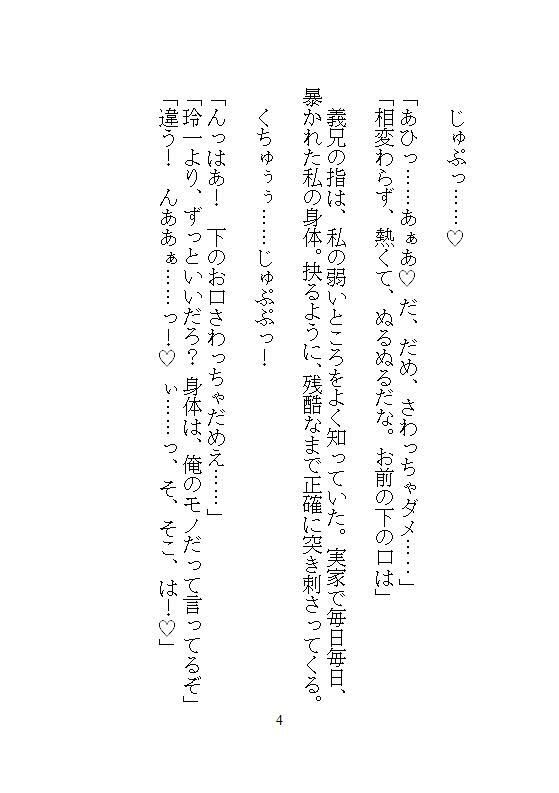 じゅぷっ……♡
「あひっ……あぁあ♡ だ、だめ、さわっちゃダメ……」
「相変わらず、熱くて、ぬるぬるだな。お前の下の口は」
義兄の指は、私の弱いところをよく知っていた。実家で毎日毎日、
暴かれた私の身体。抉るように、残酷なまで正確に突き刺さってくる。
くちゅぅぅ……じゅぷぷっ！
「んっはあ！　下のお口さわっちゃだめえ……」
「玲一より、ずっといいだろ？ 身体は、俺のモノだって言ってるぞ」
「違う！ んああぁ……っ！♡ ぃ……っ、そ、そこ、は！♡」
4